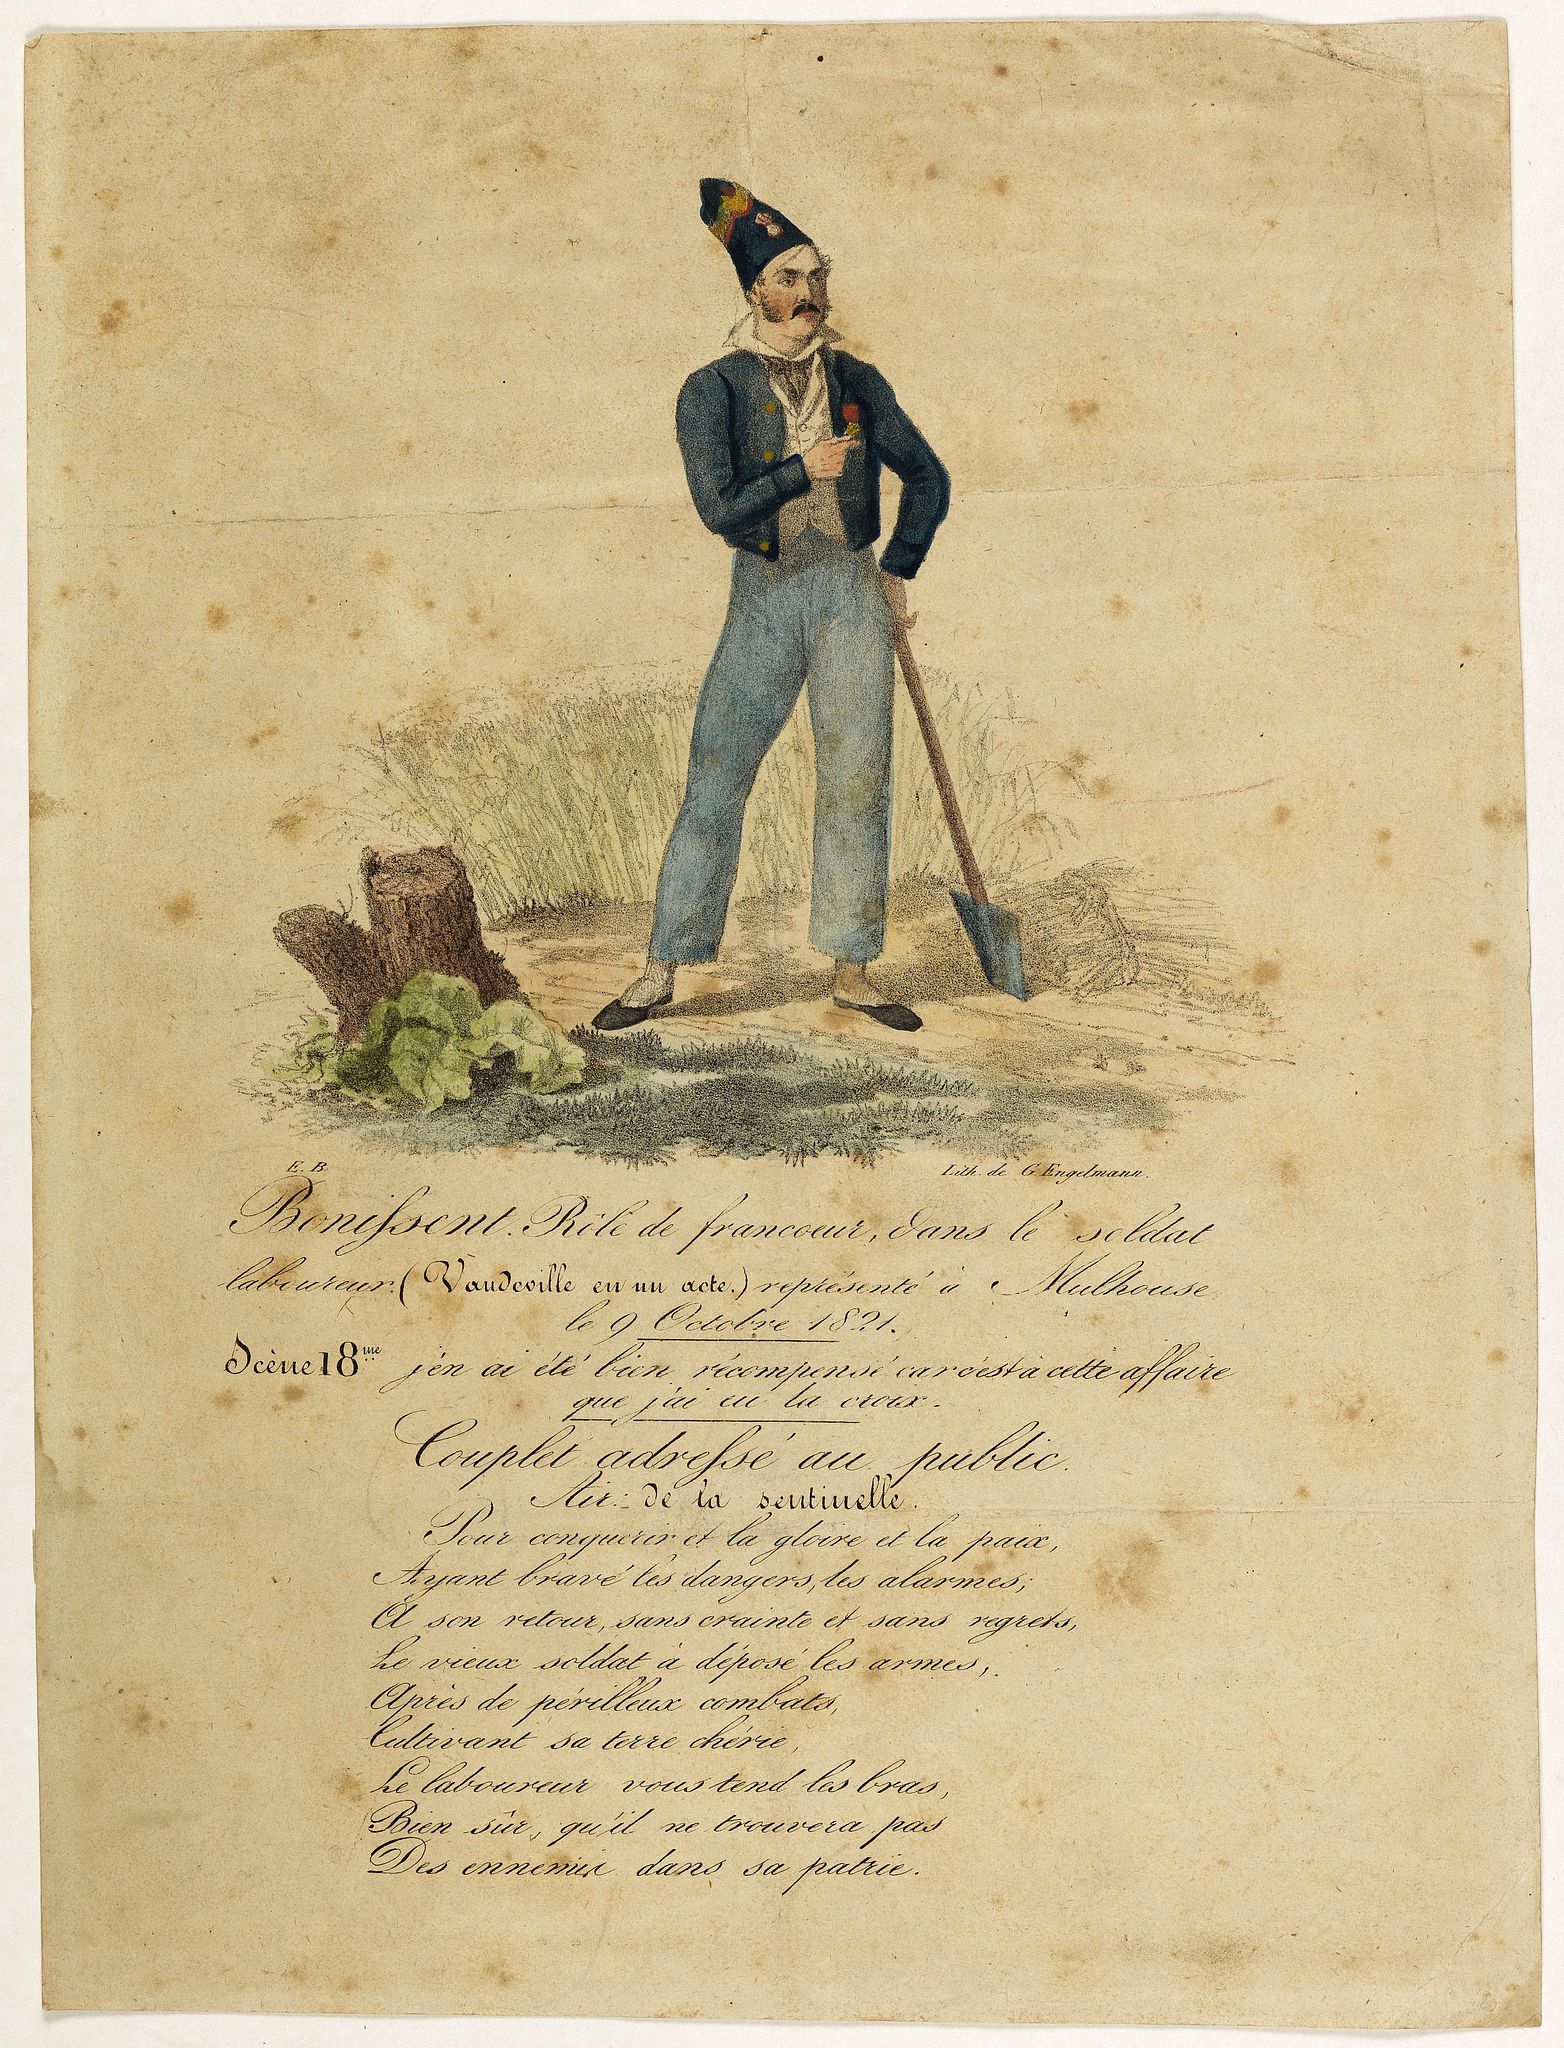 E. B.
Lith. de G. Engelmann.
Bonifsent. Rôle de francoeur, dans le soldat
laboureur. (Vaudeville en un acte.) représenté à Mulhouse
le 9 Octobre 1821.
Scène 18me j'en ai été bien récompensé car c'est à cette affaire
que j'ai eu la croix.
Couplet adrefsé au public.
Air: de la sentinelle.
Pour conquerir et la gloire et la paix,
Ayant bravé les dangers, les alarmes;
A son retour, sans crainte et sans regrets,
Le vieux soldat à déposé les armes,
Après de périlleux combats,
Cultivant sa terre chérie,
Le laboureur vous tend les bras,
Bien sûr, qu'il ne trouvera pas
Des ennemis dans sa patrie.